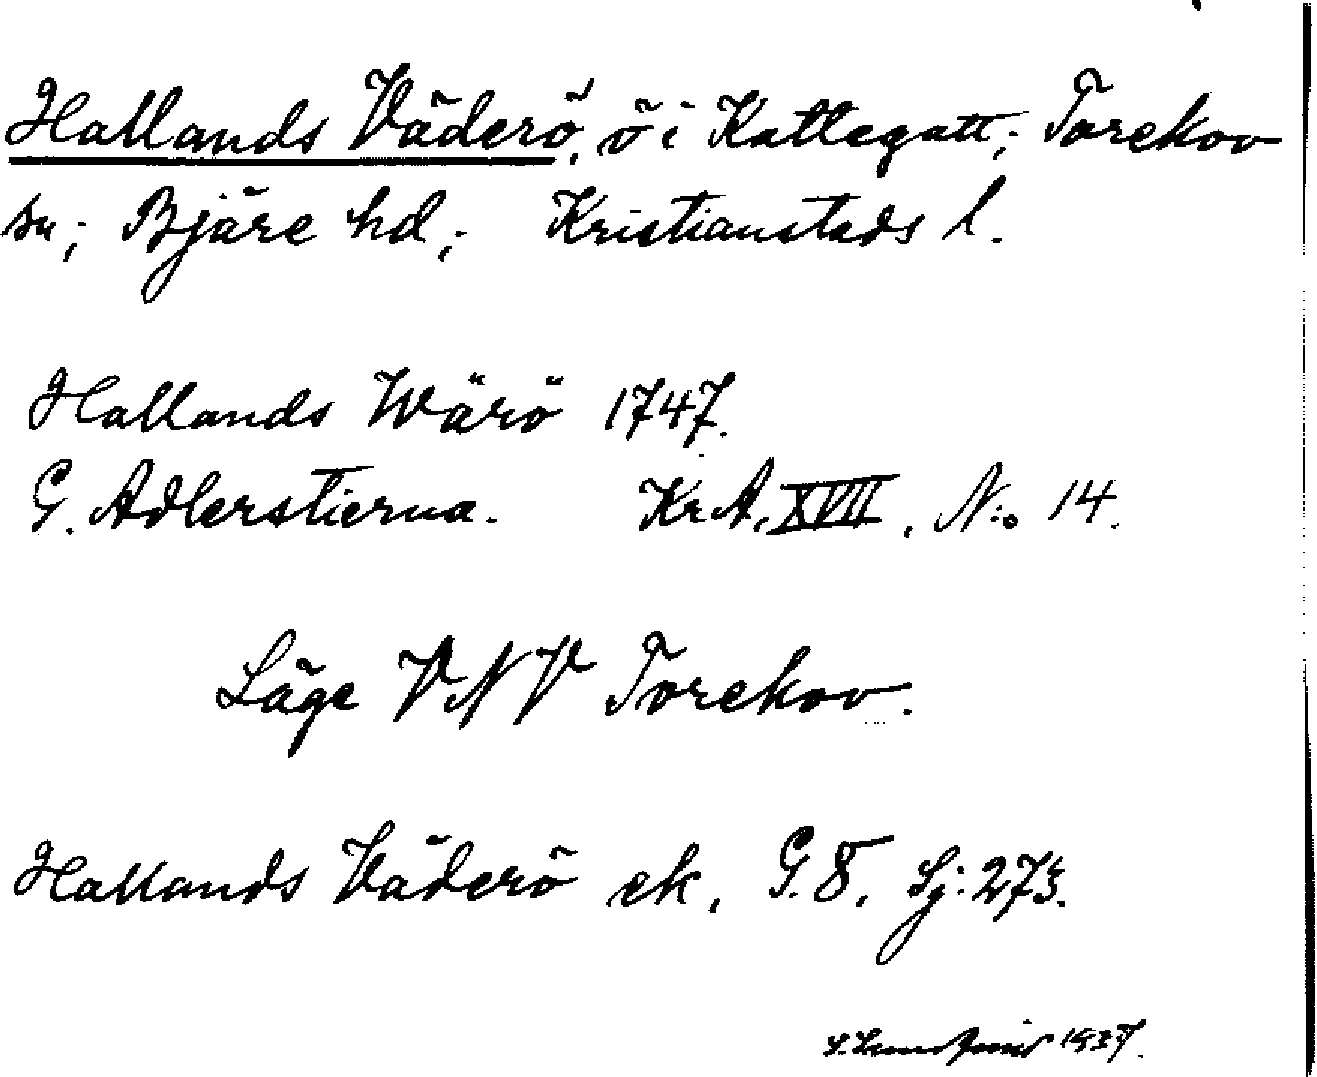 Hallands Väderö, ö i Kattegatt; Torekov
sn; Bjäre hd; Kristianstads l.
Hallands Wärö 1747.
G. Adlerstierna. Kr. A. XVII, N:o 14.
Läge VNV Torekov.
Hallands Väderö ek. G. 8. Sj: 273.
1937.